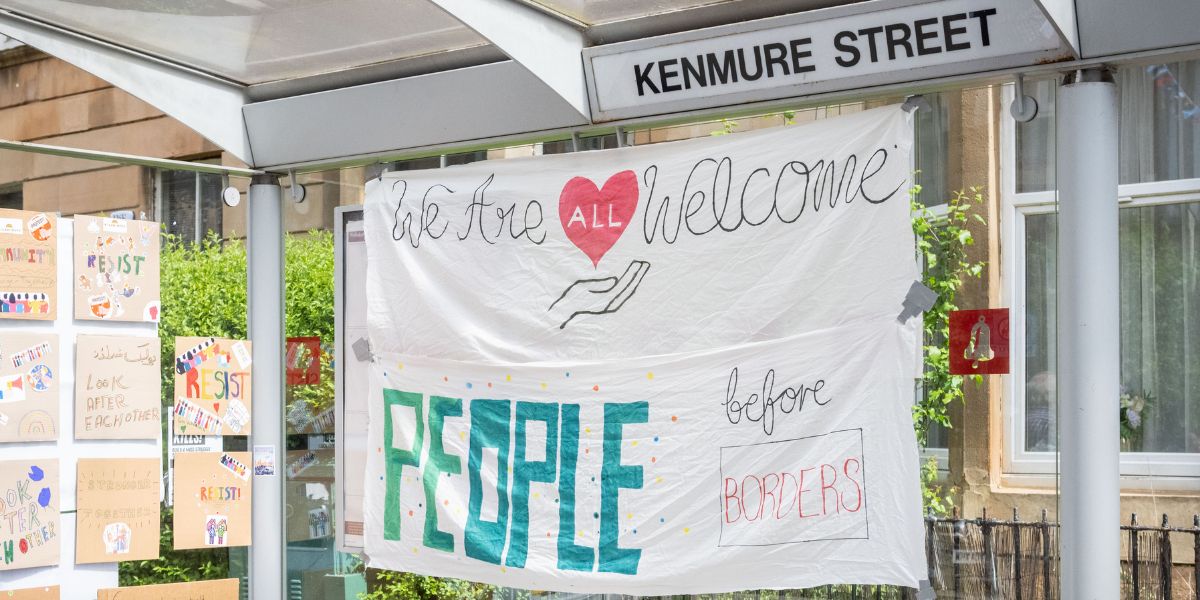 KENMURE STREET
We Are ALL Welcome
PEOPLE
before
BORDERS
COMMUNITY
RESIST
LOOK
AFTER
EACHOTHER
RESIST
KILLS!
LOOK
AFTER
EACH OTHER
STRONGER
TOGETHER
RESIST!